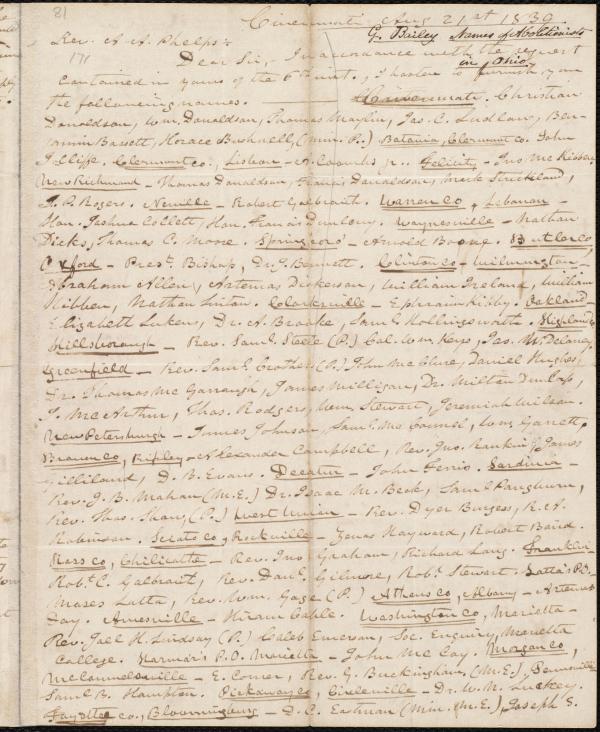 81
Cincinnati Aug 21st 1839
G. Bailey Names of Abolitionists
in Ohio
Rev. A A. Phelps:
171
Dear Sir, In accordance with the request
contained in yours of the 6th inst., I hasten to furnish you
the following names. Cincinnati. Christian
Donaldson, Wm. Donaldson, Thomas Maylin, Jas. C. Ludlow, Ben-
jamin Bassett, Horace Bushnell, (min. P.) Batavia, Clermont co. John
Jolliffe. Clermont co., Lisbon - A. Coombs jr.. Felicity - Jno McKibben,
New Richmond - Thomas Donaldson, Francis Donaldson, Mark Strickland,
J. P. Rogers. Neville - Robert Galbraith. Warren Co, Lebanon -
Hon. Joshua Collett, Hon. Francis Dunlavy. Waynesville - Nathan
Dicks, Thomas C. Moore. Springboro' - Arnold Boone. Butler Co,
Oxford - Prest. Bishop, Dr. J. Bennett. Clinton co - Wilmington -
Abraham Allen, Artemas Dickerson, William Ireland, William
Hibben, Nathan Linton. Clarksville - Ephraim Kibby. Oakland -
Elizabeth Luken, Dr. A. Brooke, Saml. Hollingsworth. Highland
Hillsborough - Rev. Saml. Steele (P.) Col. Wm. Keys, Jas. M. Delaney,
Greenfield - Rev. Saml. Crothers (P.) John McClure, Daniel Hughes,
Dr. Thomas McGarraugh, James Milligan, Dr. Milton Dunlap,
J. McArthur, Thos. Rodgers, Stewart, Jeremiah Wilson.
New Petersburgh - James Johnson, Saml. McConnel, Wm. Garrett.
Brown co, Ripley - Alexander Campbell, Rev. Jno. Rankin, James
Gilliland, D. B. Evans. Decatur - John Ferris. Sardinia -
Rev. J. B. Mahan (M.E.) Dr. Isaac M. Beck, Saml Pangburn,
Rev. Thos. Shaw, (P.) West Union - Rev. Dyer Burgess, R. A.
Robinson. Scioto co, Rockville - Zenas Hayward, Robert Baird.
Ross co, Chilicothe - Rev. Jno Graham, Richard Long. Franklin -
Robt. C. Galbraith, Rev. Danl. Gilmore, Robt. Stewart. Latta's P.O.
Moses Latta, Rev. Wm. Gage (P.) Athens co, Albany - Artemas
Day. Amesville - Hiram Cable. Washington co, Marietta -
Rev. Joel H. Lindsay (P.) Caleb Emerson, Soc. Enquiry, Marietta
College. Harmar's P.O. Marietta - John McCoy. Morgan co,
McConnelsville - E. Corner, Rev. G. Buckingham, (M.E.) Pennsville -
Saml B. Hampton. Pickaway co, Circleville - Dr. W. N. Luckey.
Fayette co, Bloomingburg - D. C. Eastman (Min. M.E.), Joseph S.